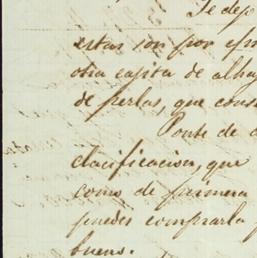 Te dejo
estas son por
otra cajita de alhaj
de perlas, que cons
Ponte de a
clacificacion, que
como de primera
puedes comprarla
bueno.